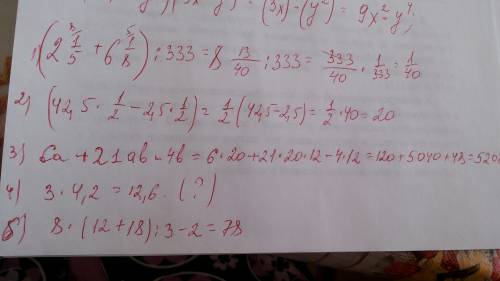 = (3x)²-(y²) = 9x²-y⁴;
1) (2 1/5 + 6 1/8) : 333 = 8 13/40 : 333 = 333/40 · 1/333 = 1/40
2) (42,5 · 1/2 - 2,5 · 1/2) = 1/2 (42,5-2,5) = 1/2 · 40 = 20
3) 6a + 21ab - 4b = 6 · 20 + 21 · 20 · 12 - 4 · 12 = 120 + 5040 + 48 = 520
4) 3 · 4,2 = 12,6. (?)
5) 8 · (12 + 18) : 3 - 2 = 78